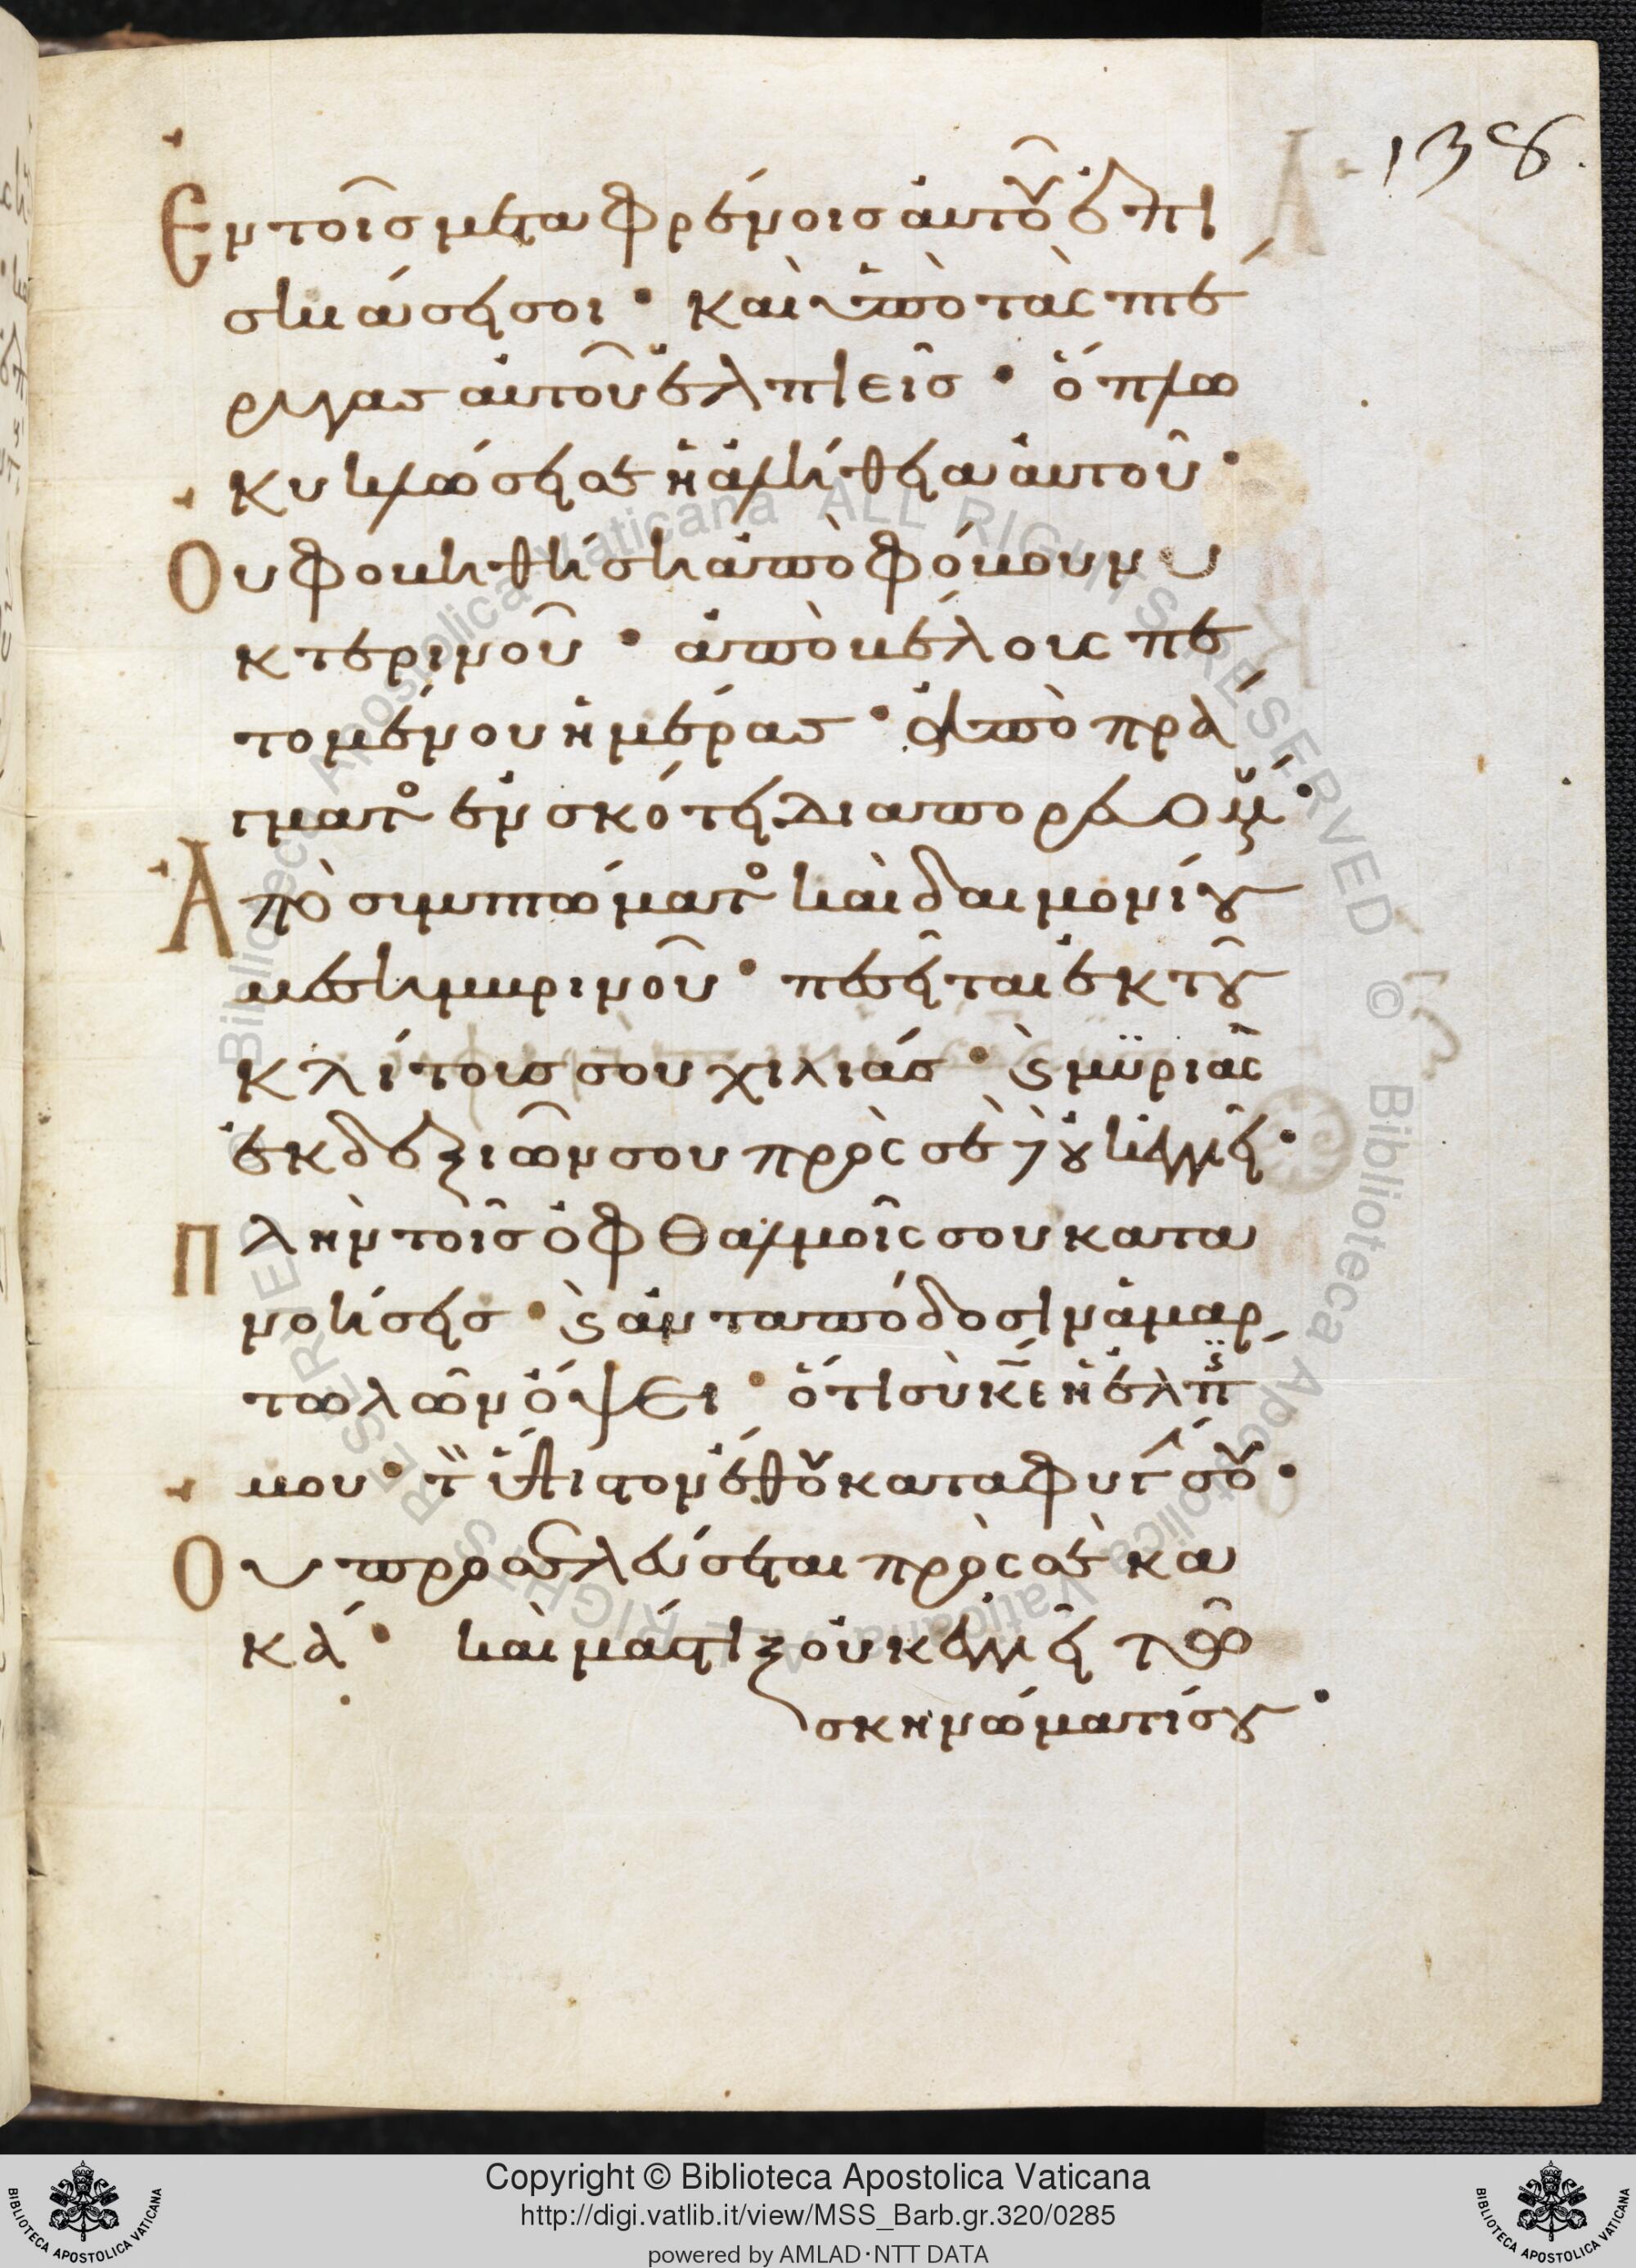 138.
Ἐν τοῖς μεταφρένοις ἀυτοῦ ἐπι
σκιάσει σοι · καὶ ὑπὸ τὰς πτέ
ρυγας ἀυτοῦ ἐλπιεῖς · ὅπλω
κυκλώσει σε ἡ ἀλήθεια ἀυτοῦ ·
Ου φοβηθήση ἀπὸ φόβου νυ
κτερινοῦ · ἀπὸ βέλους πε
τομένου ἡμέρας · ἀπὸ πρά
γματος ἐν σκότει διαπορευομέν ·
Ἀπὸ συμπτώματος καὶ δαιμονίου
μεσημβρινοῦ · πεσεῖται ἐκ τοῦ
κλίτους σου χιλιάς · ϗ μϋριὰς
ἐκ δεξιῶν σου πρὸς σὲ δὲ οὐκ ἐγγιεῖ ·
Πλὴν τοῖς ὀφθαλμοῖς σου κατα
νοήσεις · ϗ ἀνταπόδοσιν ἁμαρ
τωλῶν ὄψει · ὅτι σὺ κ̅ε̅ ἡ ἐλπίς
μου · τὸν ὕψιστον ἔθου καταφυγ σου ·
Ου προσελεύσεται πρὸς σὲ κα
κά · καὶ μάστιξ οὐκ ἐγγιεῖ τῶ
σκηνώματί σου ·
Copyright © Biblioteca Apostolica Vaticana
http://digi.vatlib.it/view/MSS_Barb.gr.320/0285
powered by AMLAD·NTT DATA